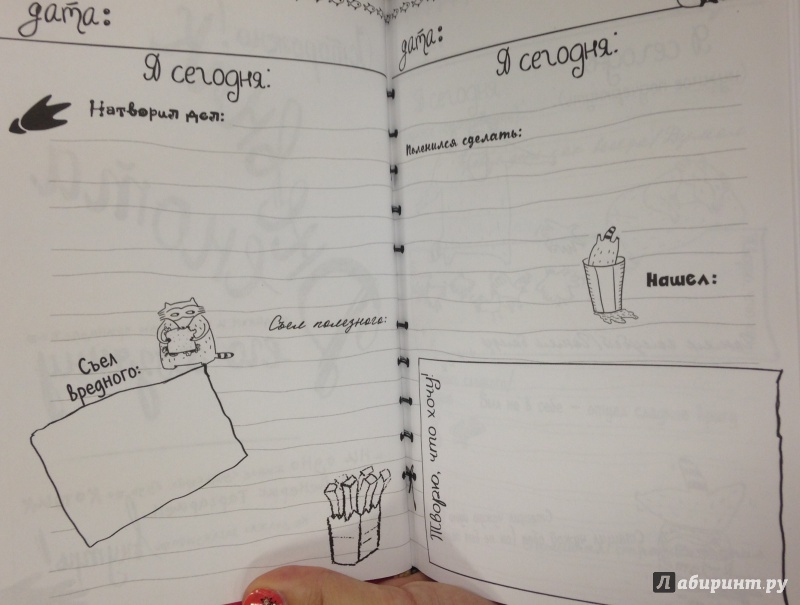 дата:
Я сегодня:
Натворил дел:
Съел полезного:
Съел
вредного:
дата:
Я сегодня:
Поленился сделать:
Нашел:
Творю, что хочу:
Лабиринт.ру